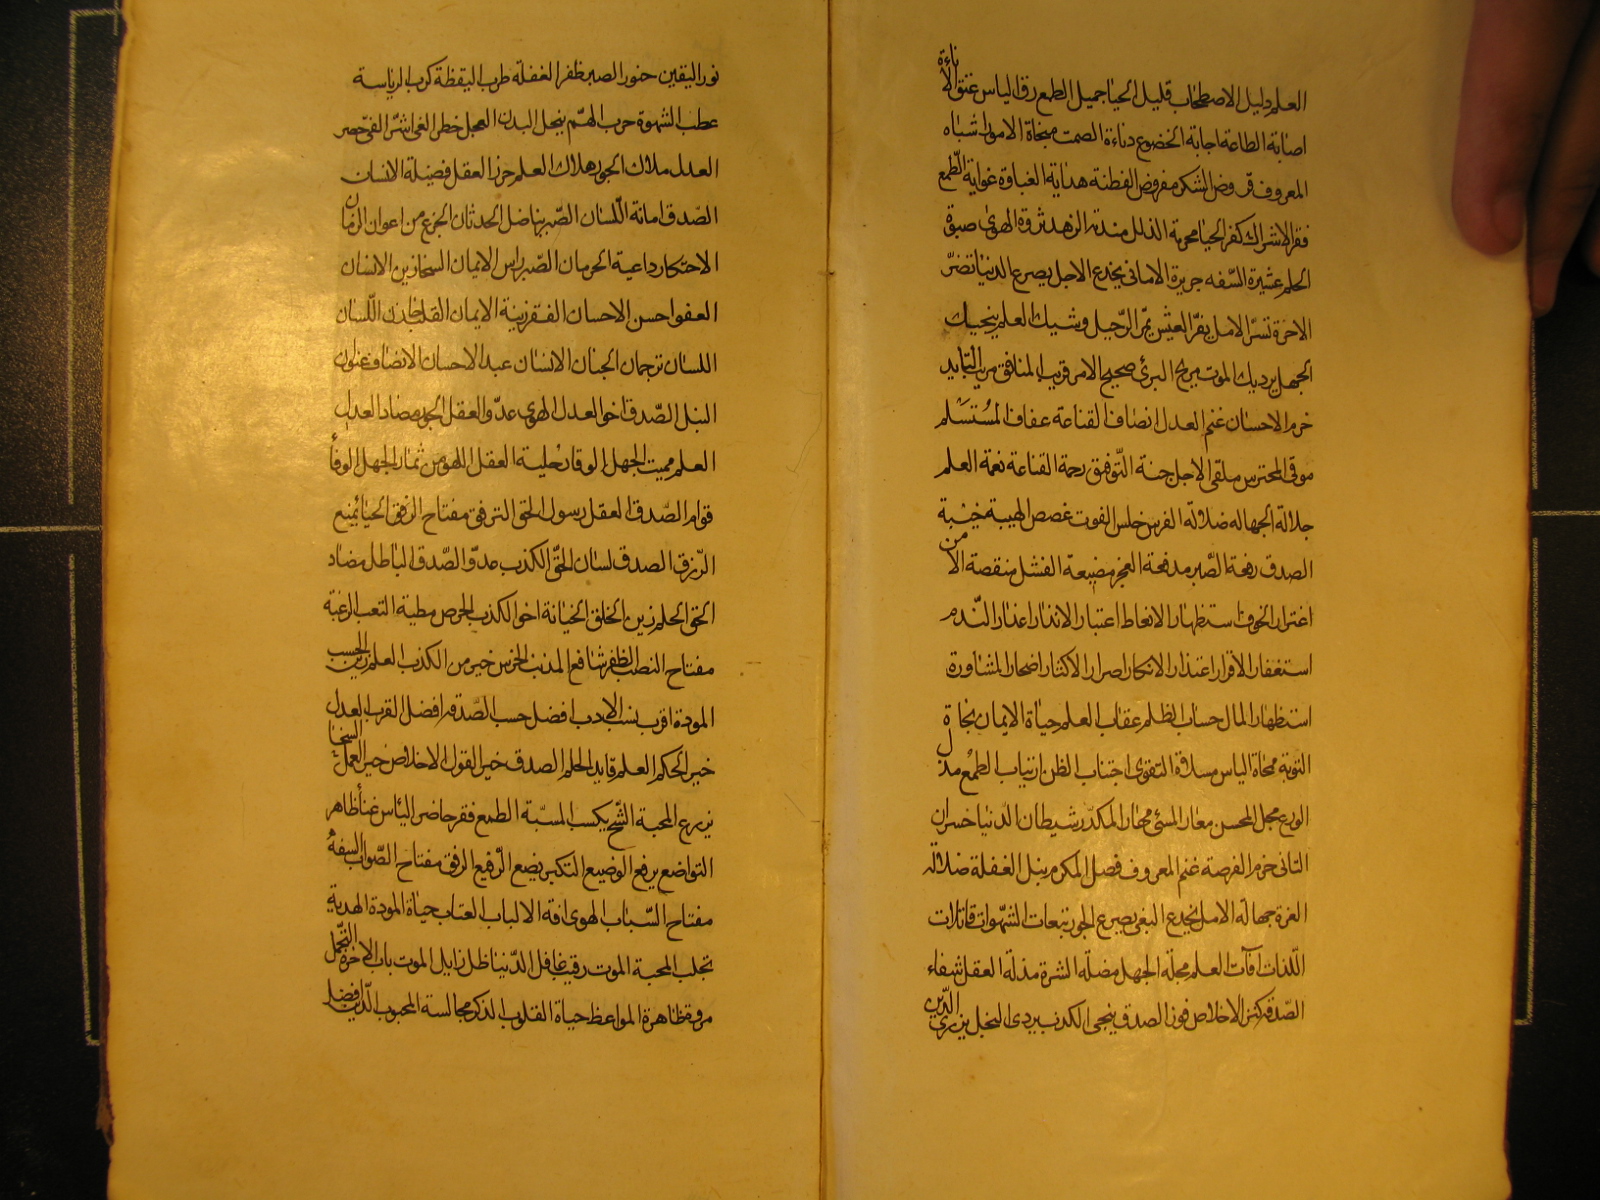 العلم دليل الاصطحاب قليل الحيا جميل الطمع رق الياس عتق الاناءة
اصابة الطاعة اجابة الخضوع دناءة الصمت منجاة الامور اشباه
المعروف قروض الشكر مفروض الفطنة هداية الغباوة غواية الطّمع
فقر الاشراك كفر الحيا محرمة الذلل مندمة الزهد ثروة الهوى
الحلم عشيرة السّفه جريرة الامانى يخدع الاجل يصرع الدنيا تضرّ
الاخرة تسرّ الامل يغرّ العيش يمرّ الرّحيل وشيك العلم ينجيك
الجهل يرديك الموت مريح البرئ صحيح الامر قريب المنافق مريب التّأييد
حزم الاحسان غنم العدل انصاف القناعة عفاف المُسْتَسْلم
موقى المحترس ملقى الاجل جنة التّوفيق رحمة القناعة نعمة العلم
جلالة الجهاله ضلالة الفرص خلس الفوت غصص الهيبة خيبة
الصدق رفعة الصَّبر مدفعة العجز مضيعة الفشل منقصة الامن
اغترار الخوف استظهار الاتعاظ اعتبار الانذار اعذار النّدم
استغفار الاقرار اعتذار الانكار اصرار الاكثار اضجار المشاورة
استظهار المال حساب الظلم عقاب العلم حياة الايمان نجاة
التوبة ممحاة الياس مسلاة التقوى اجتناب الظن ارتياب الطمع مذل
الورع مجل المحسن معان المسئ مهان المكر شيطان الدنيا خسران
التانى حزم الفرصة غنم المعروف فضل الكرم نبل الغفلة ضلالة
الغرة جهالة الامل يخدع البغى يصرع الجور تبعات الشهوات قاتلات
اللّذات آفات العلم مجلّة الجهل مضلّة الشره مذلّة العقل شفاء
الصّدقة كنز الاخلاص فوز الصدق ينجى الكذب يردى البخل يزرى الدّين
نور اليقين حبور الصبر ظفر الغفلة طرب اليقظة كرب الرياسة
عطب الشهوة حرب الهمّ ينحل البدن العجل خطر الغى اشر العى حصر
العدل ملاك الجور هلاك العلم حرز العقل فضيلة الانسان
الصّدق امانة اللّسان الصّبر يناضل الحدثان الجزع من اعوان الزمان
الاحتكار داعية الحرمان الصّبر راس الايمان السخا زين الانسان
العفو احسن الاحسان الفقر زينة الايمان القلب خازن اللّسان
اللسان ترجمان الجنان الانسان عبد الاحسان الانصاف عنوان
النبل الصّدق اخو العدل الهوى عدوّ العقل الجور مضاد العدل
العلم مميت الجهل الوقار حلية العقل اللهو من ثمار الجهل الوفأ
قوام الصّدق العقل رسول الحق الترفق مفتاح الرّفق الحيا يمنع
الرّزق الصدق لسان الحقّ الكذب عدوّ الصّدق الباطل مضاد
الحق الحلم زين الخلق الخيانة اخو الكذب الحرص مطية التعب الرغبة
مفتاح النصب الظفر شافع المذنب الخرس خير من الكذب العلم زين الحسب
المودة اقرب نسب الادب افضل حسب الصّدقة افضل القرب العدل
خير الحكم العلم قايد الحلم الصدق خير القول الاخلاص خير العمل السخا
يزرع المحبة الشّح يكسب المسبّة الطمع فقر حاضر اليأس غنأ ظاهر
التواضع يرفع الوضيع التكبر يضع الرّفيع الرفق مفتاح الصّواب السفه
مفتاح السّباب الهوى افة الالباب العتاب حياة المودة الهدية
تجلب المحبة الموت رقيب غافل الدّنيا ظل زايل الموت باب الاخرة التجمّل
مروة ظاهرة المواعظ حياة القلوب الذكر مجالسة المحبوب الدّين افضل